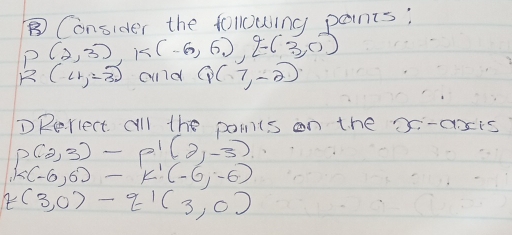 B) Consider the following points:
P(2,3), K(-6,6), Z(3,0)
R(-4,-3) and Q(7,-2).
1) Reflect all the points on the x-axis
P(2,3) - P'(2,-3).
K(-6,6) - K'(-6,-6)
Z(3,0) - Z'(3,0)